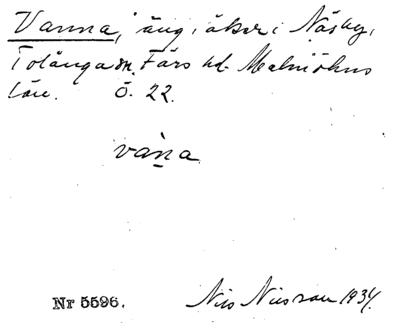 Vanna, äng, åker i Näsby,
Tolånga sn. Färs hd. Malmöhus
län. Ö. 22.
vàṉa
Nr 5596. Nils Nilsson 1934.